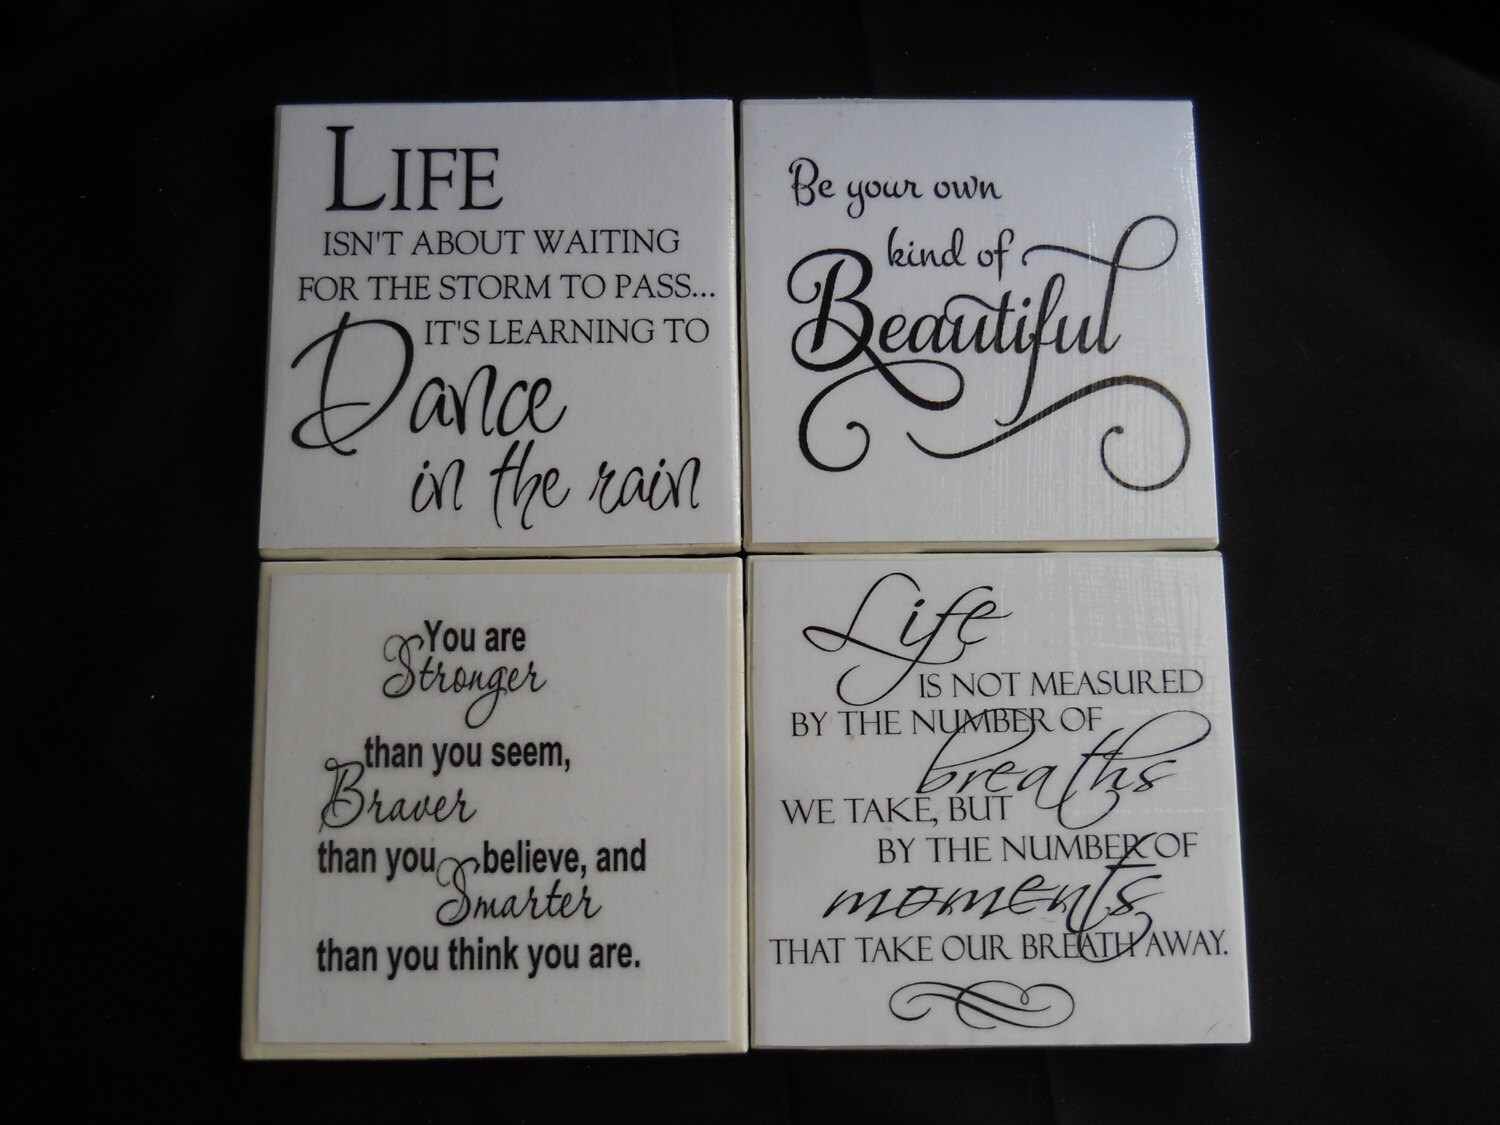 LIFE
ISN'T ABOUT WAITING
FOR THE STORM TO PASS...
IT'S LEARNING TO
Dance
in the rain
Be your own
kind of
Beautiful
You are
Stronger
than you seem,
Braver
than you believe, and
Smarter
than you think you are.
Life
IS NOT MEASURED
BY THE NUMBER OF
breaths
WE TAKE, BUT
BY THE NUMBER OF
moments
THAT TAKE OUR BREATH AWAY.